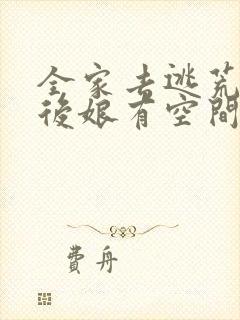 全家去逃荒
後娘有空間
費舟